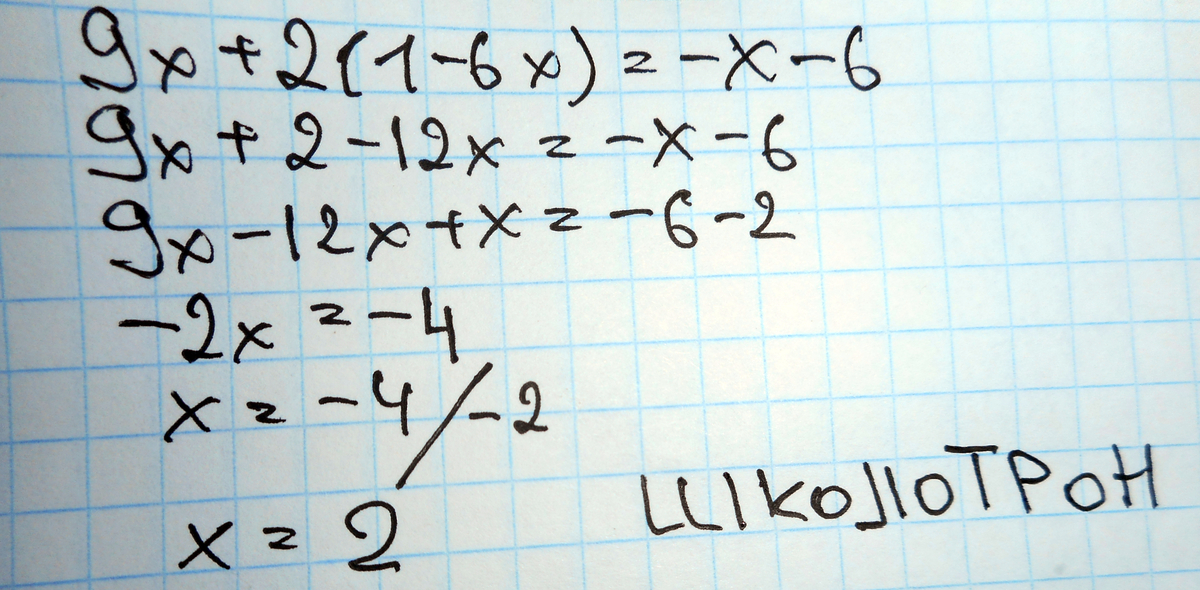 9x + 2(1-6x) = -x-6
9x + 2-12x = -x-6
9x-12x+x = -6-2
-2x = -4
x = -4/-2
x = 2
ШКОЛОТРОН